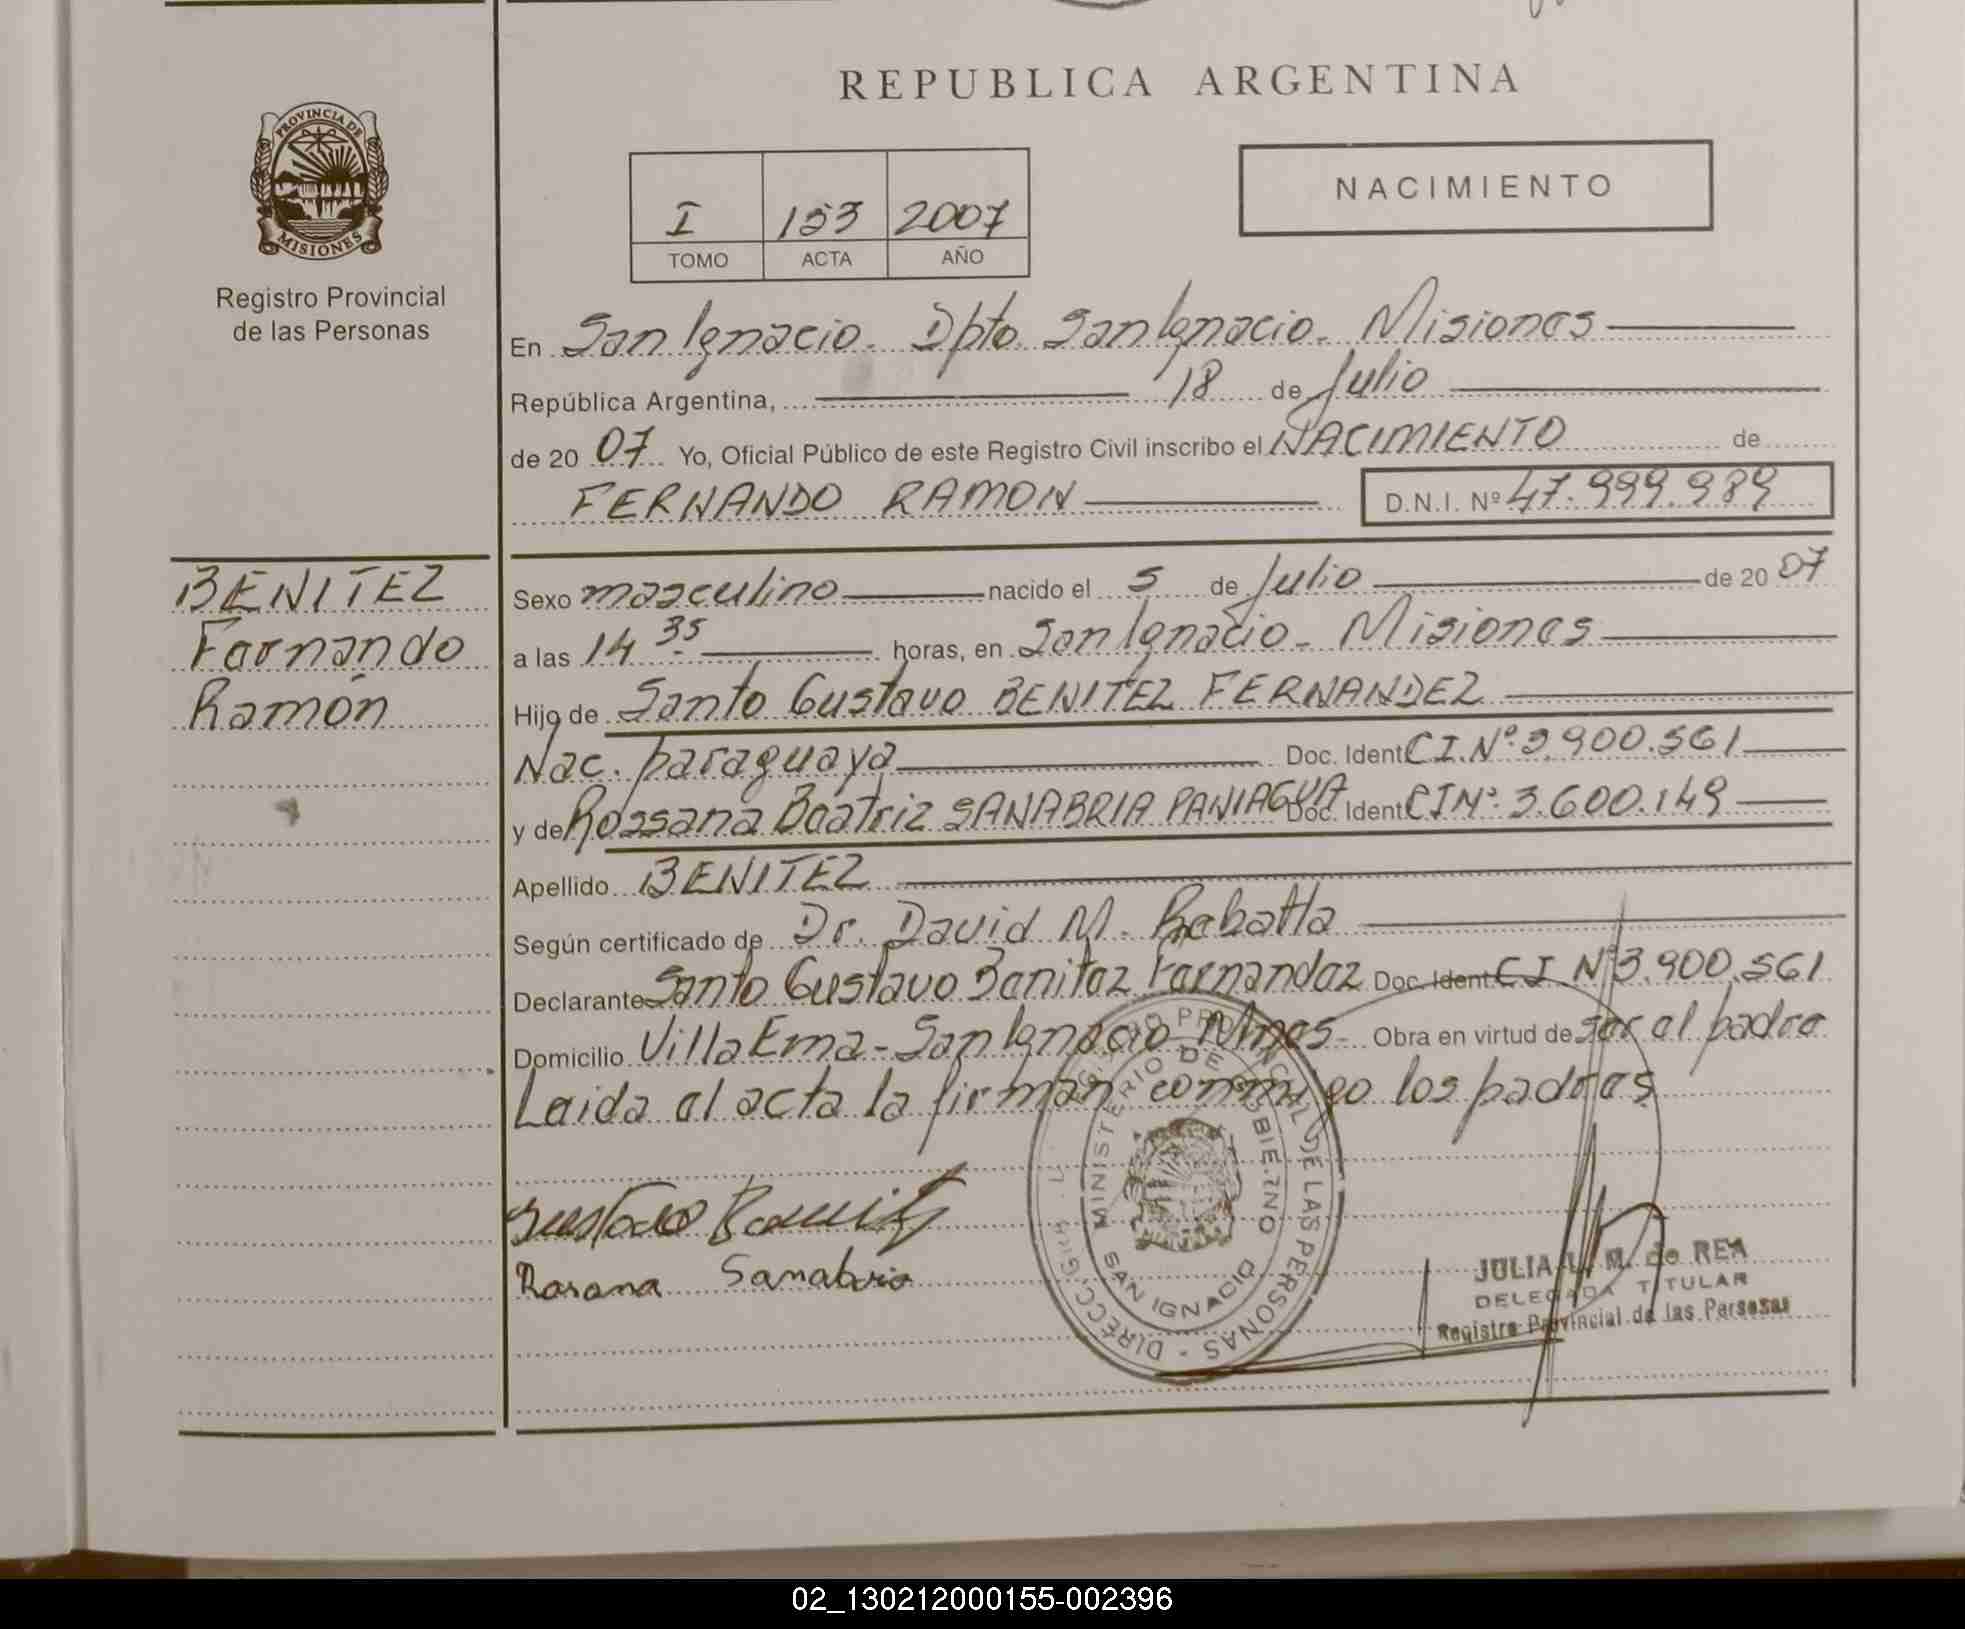 REPUBLICA ARGENTINA
PROVINCIA DE
MISIONES
Registro Provincial
de las Personas
I 153 2007
TOMO ACTA AÑO
NACIMIENTO
En San Ignacio. Dpto. San Ignacio. Misiones
República Argentina, 18 de Julio
de 20 07 Yo, Oficial Público de este Registro Civil inscribo el NACIMIENTO de
FERNANDO RAMON D.N.I. Nº 47.999.989
BENITEZ
Fernando
Ramón
Sexo masculino nacido el 5 de Julio de 20 07
a las 14 35 horas, en San Ignacio - Misiones
Hijo de Santo Gustavo BENITEZ FERNANDEZ
Nac. paraguaya Doc. Ident CI.Nº 3.900.561
y de Rossana Beatriz SANABRIA PANIAGUA Doc. Ident CI Nº 3.600.149
Apellido BENITEZ
Según certificado de Dr. David M.
Declarante Santo Gustavo Benitez Fernandez Doc. Ident CI Nº 3.900.561
Domicilio Villa Ema - San Ignacio Mnes. Obra en virtud de ser el padre
Leida el acta la firman conmigo los padres
Gustavo Benitez
Rosana Sanabria
REGISTRO PROVINCIAL DE LAS PERSONAS - DIRECC. GRAL.
MINISTERIO DE GOBIERNO
SAN IGNACIO
JULIA L. M. de REA
DELEGADA TITULAR
Registro Provincial de las Personas
02_130212000155-002396